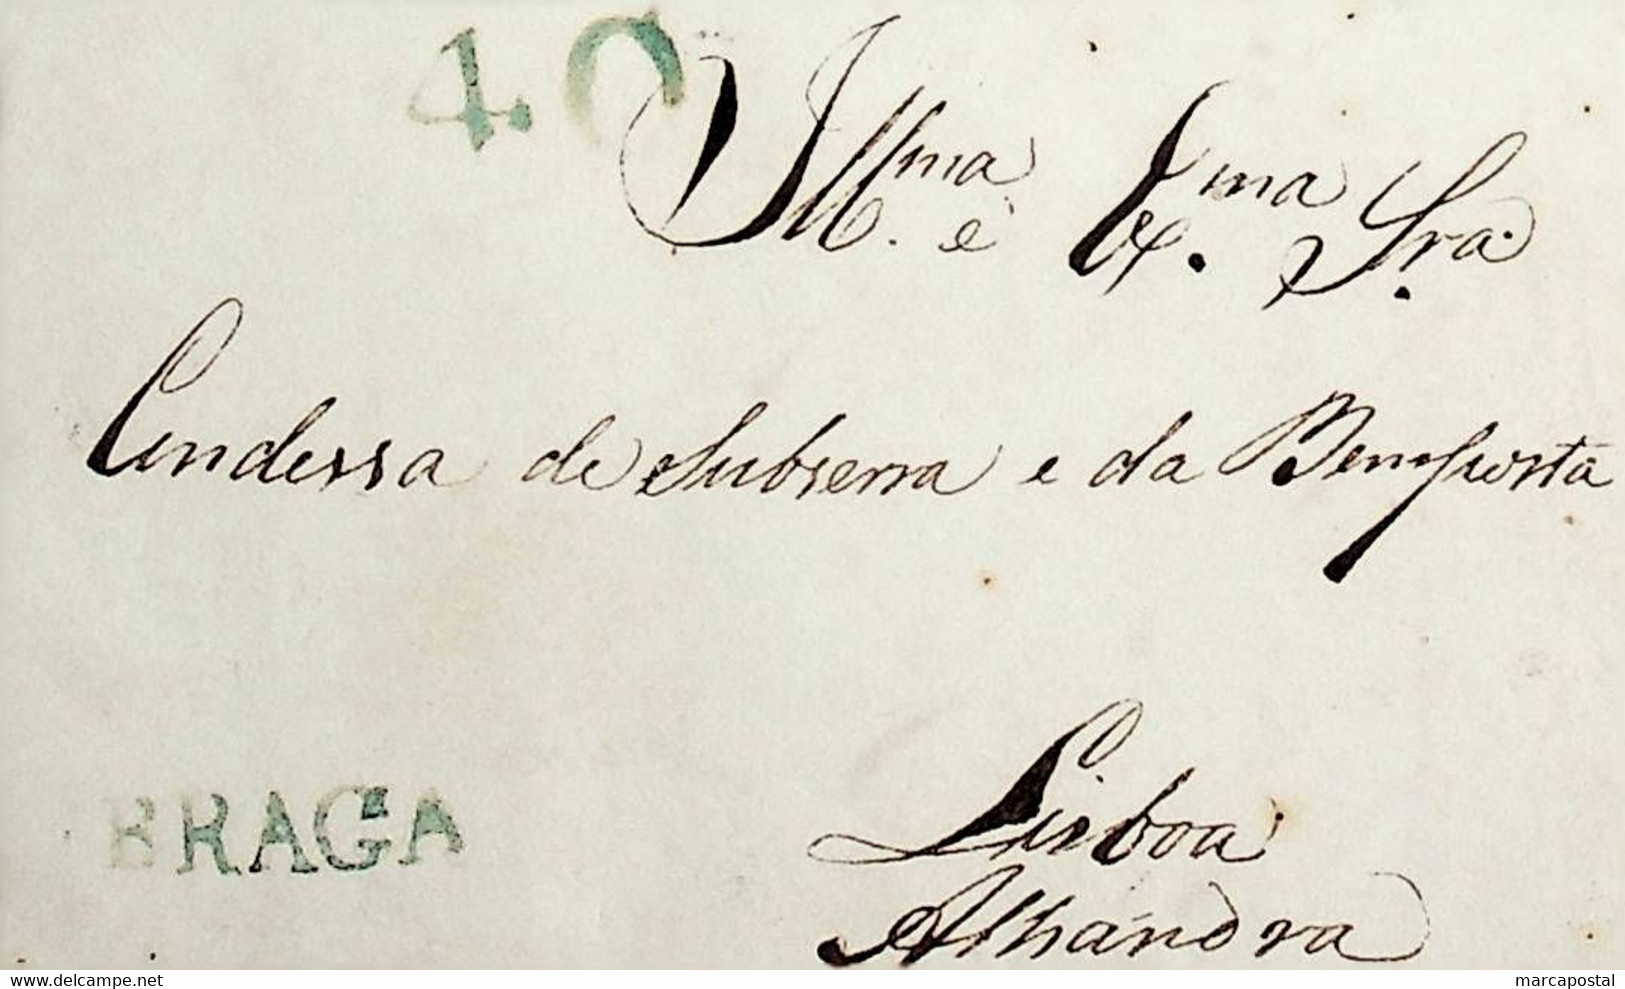 40
Illma. e Exma. Sra.
Condessa de Subserra e da Bemposta
BRAGA
Lisboa
Alhandra
delcampe.net
marcapostal